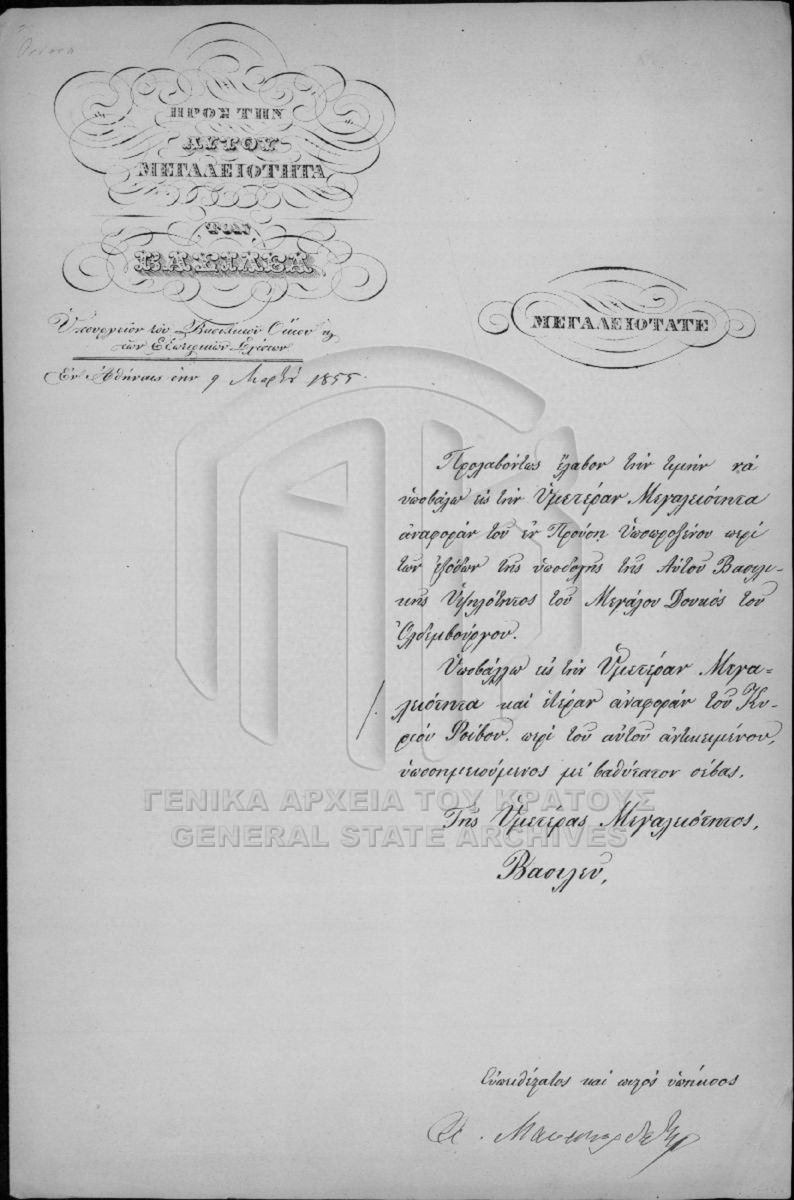 ΠΡΟΣ ΤΗΝ
ΑΥΤΟΥ
ΜΕΓΑΛΕΙΟΤΗΤΑ
ΤΟΝ
ΒΑΣΙΛΕΑ
Ὑπουργεῖον τοῦ Βασιλικοῦ Οἴκου κ̀
τῶν Ἐξωτερικῶν Σχέσεων
Ἐν Ἀθήναις τὴν 9 Μαρτίου 1855.
ΜΕΓΑΛΕΙΟΤΑΤΕ
Προλαβόντως ἔλαβον τὴν τιμὴν νὰ
ὑποβάλω εἰς τὴν Ὑμετέραν Μεγαλειότητα
ἀναφορὰν τοῦ ἐν Προύσῃ Ὑποπροξένου περὶ
τῶν ἐξόδων τῆς ὑποδοχῆς τῆς Αὐτοῦ Βασιλι-
κῆς Ὑψηλότητος τοῦ Μεγάλου Δουκὸς τοῦ
Ὀλδεμβούργου.
Ὑποβάλλω εἰς τὴν Ὑμετέραν Μεγα-
λειότητα καὶ ἑτέραν ἀναφορὰν τοῦ Κυ-
ρίου Ροΐβου. περὶ τοῦ αὐτοῦ ἀντικειμένου,
ὑποσημειούμενος μὲ βαθύτατον σέβας.
Τῆς Ὑμετέρας Μεγαλειότητος,
Βασιλεῦ,
Εὐπειθέστατος καὶ πιστὸς ὑπήκοος
ΓΕΝΙΚΑ ΑΡΧΕΙΑ ΤΟΥ ΚΡΑΤΟΥΣ
GENERAL STATE ARCHIVES